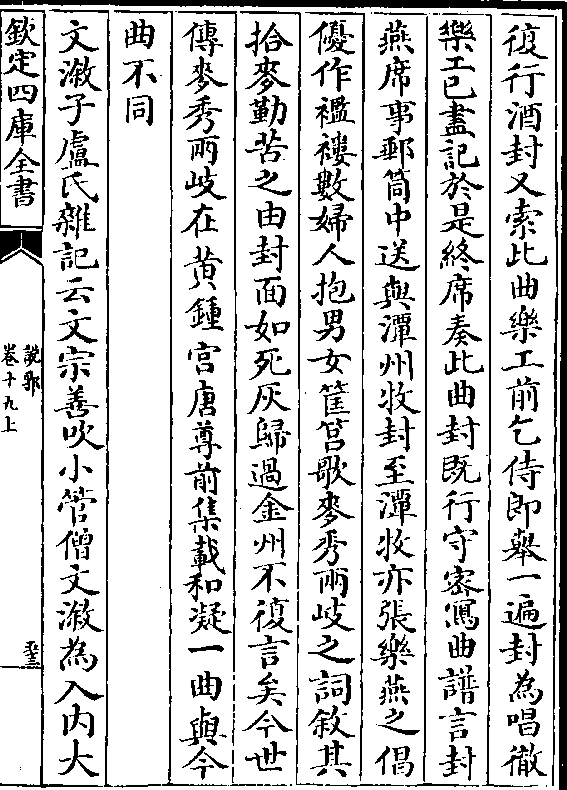 復行酒封又索此曲樂工前乞侍郎舉一遍封為唱徹
樂工已盡記於是終席奏此曲封既行守密寫曲譜言封
燕席事郵筒中送與潭州牧封至潭牧亦張樂燕之倡
優作襤褸數婦人抱男女筐筥歌麥秀兩岐之詞敘其
拾麥勤苦之由封面如死灰歸過金州不復言矣今世
傳麥秀兩岐在黄鍾宮唐尊前集載和凝一曲與今
曲不同
文漵子盧氏雜記云文宗善吹小管僧文漵為入内大
欽定四庫全書
說郛
卷十九上